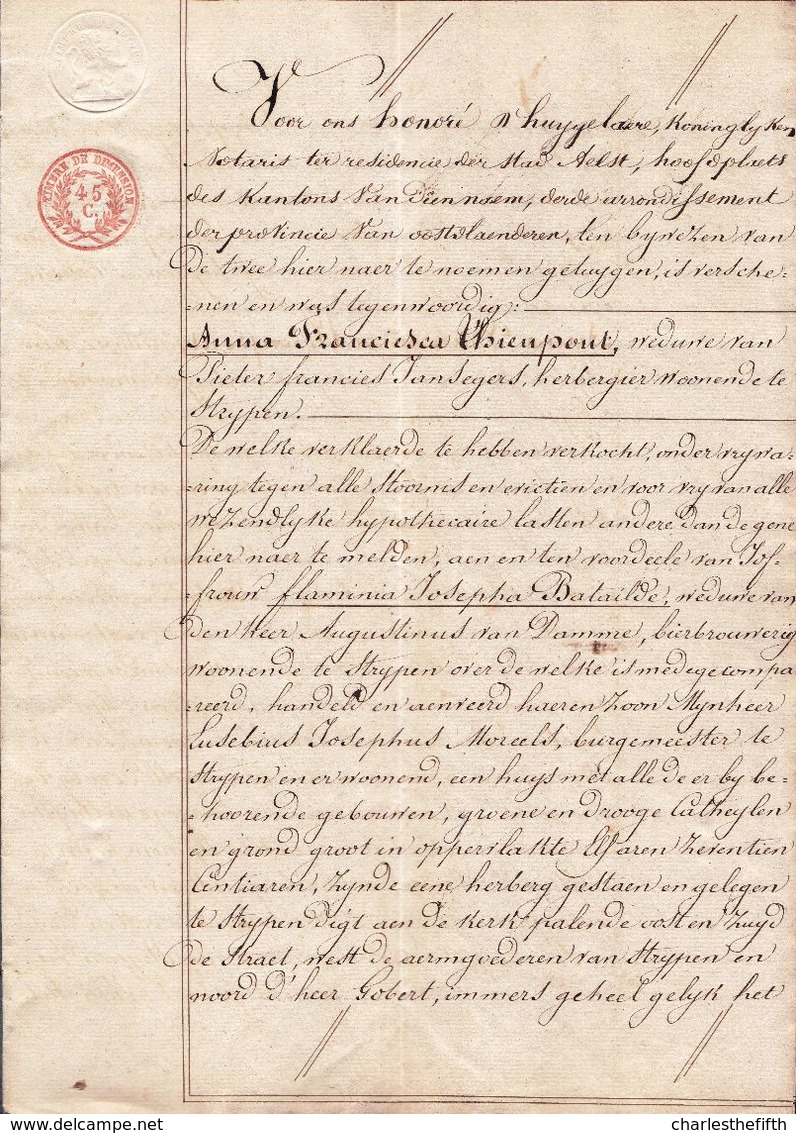 TIMBRE DE DIMENSION
45
C.
Voor ons honoré D'huygelaere, Koninglyken
Notaris ter residencie der stad Aelst, hoofdplaets
des Kantons van dien naem, derde arrondissement
der provincie van oostvlaenderen, ten bywezen van
de twee hier naer te noemen getuygen, is versche-
-nen en was tegenwoordig:
Anna Franciesca Thienpont, weduwe van
Pieter francies Jansegers, herbergier woonende te
Strypen.
De welke verklaerde te hebben verkocht, onder vrywa-
-ring tegen alle Stoornis en evictien en voor vry van alle
wezendlyke hypothecaire lasten andere dan de gene
hier naer te melden, aen en ten voordeele van Jof-
-frouw flaminia Josepha Batailde, weduwe van
den heer Augustinus van Damme, bierbrouwerig
woonende te Strypen over de welke is medegecompa
-reerd, handeld en aenveerd haeren zoon Mynheer
Eusebius Josephus Moreels, burgemeester te
Strypen en er woonend, een huys met alle de er by be-
-hoorende gebouwen, groene en drooge Catheylen
en grond groot in oppervlakte Elf aren zeventien
Centiaren, zynde eene herberg gestaen en gelegen
te Strypen digt aen de kerk palende oost en zuyd
de Straet, west de aermgoederen van Strypen en
noord d'heer Gobert, immers geheel gelyk het
charlesthefifth